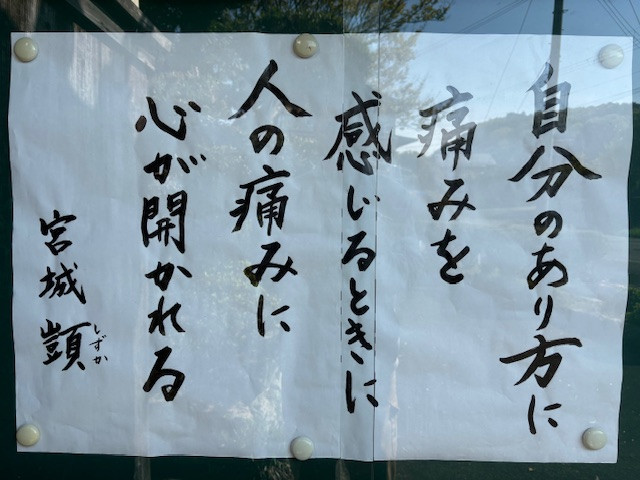 自分のあり方に
痛みを
感じるときに
人の痛みに
心が開かれる
宮城 顗
しずか